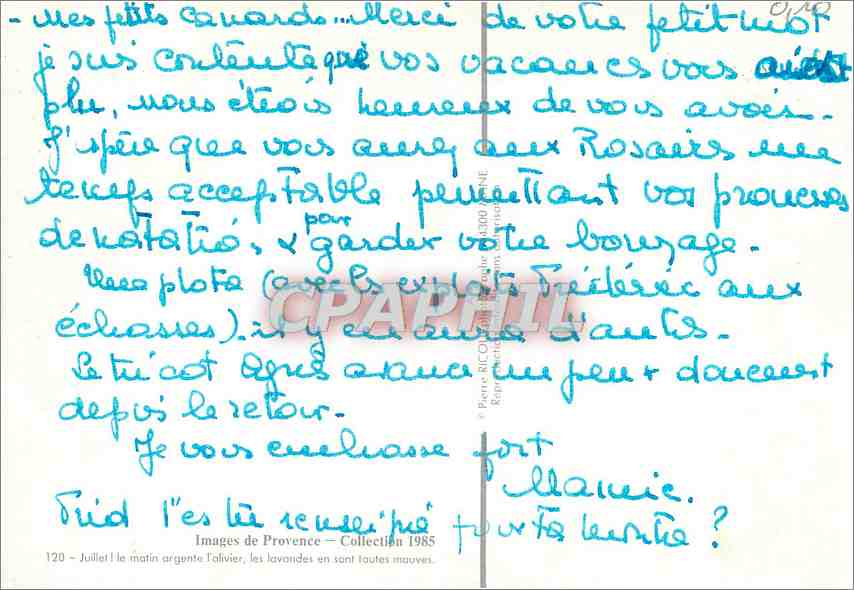 - Mes petits canards... Merci de votre petit mot
je suis contente que vos vacances vous aient
plu, nous étions heureux de vous avoir.
J'espère que vous aurez aux Rosaires une
temps acceptable permettant vos prouesses
de natatio, & pour garder votre bronzage.
Une photo (avec les exploits Frédéric aux
échasses).. il y en aura d'autres.
Le tricot Agnès avance un peu + doucement
depuis le retour.
Je vous embrasse fort
Mamie.
Fred t'es tu renseigné pour ta montre ?
0,10
CPAPHIL
© Pierre RICOU
Images de Provence — Collection 1985
120 — Juillet ! le matin argente l'olivier, les lavandes en sont toutes mauves.